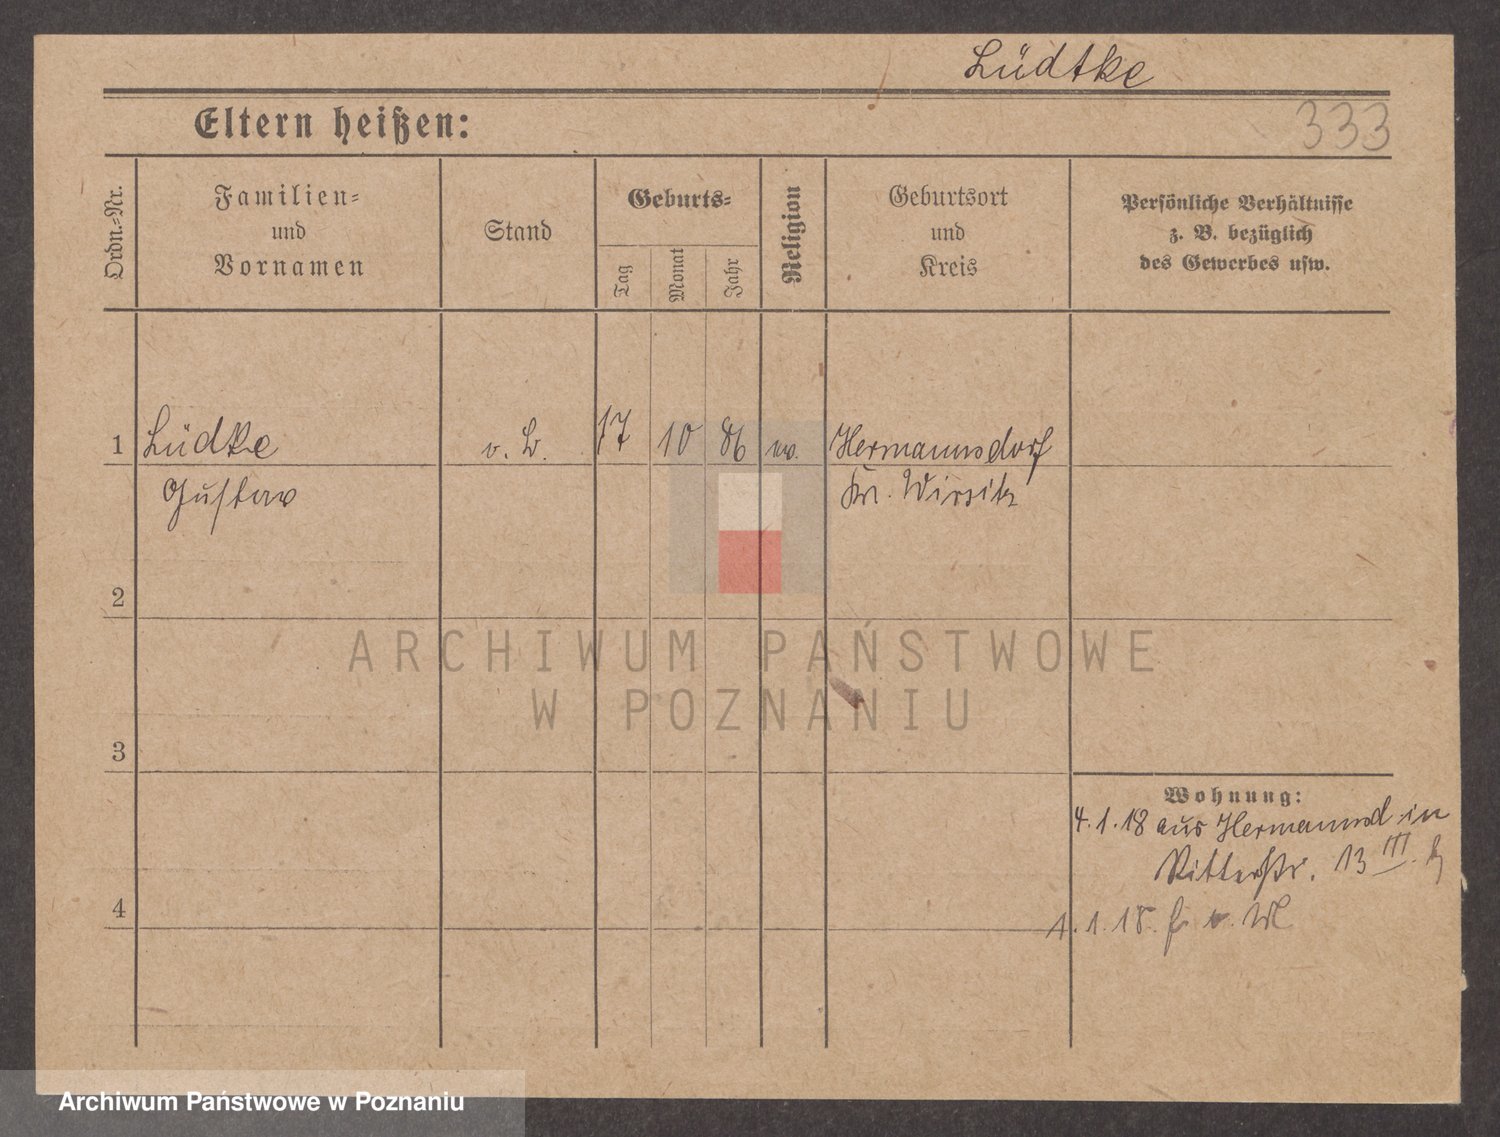 Lüdtke
333
Eltern heißen:
Ordn.-Nr.
Familien-
und
Vornamen
Stand
Geburts-
Tag
Monat
Jahr
Religion
Geburtsort
und
Kreis
Persönliche Verhältnisse
z. B. bezüglich
des Gewerbes usw.
1 Lüdtke 17 10 86 ev. Hermannsdorf
Gustav Kr. Wirsitz
2
3
4
Wohnung:
4.1.18 aus Hermannsd in
Ritterstr. 13 III.
1.1.18.
ARCHIWUM PAŃSTWOWE
W POZNANIU
Archiwum Państwowe w Poznaniu